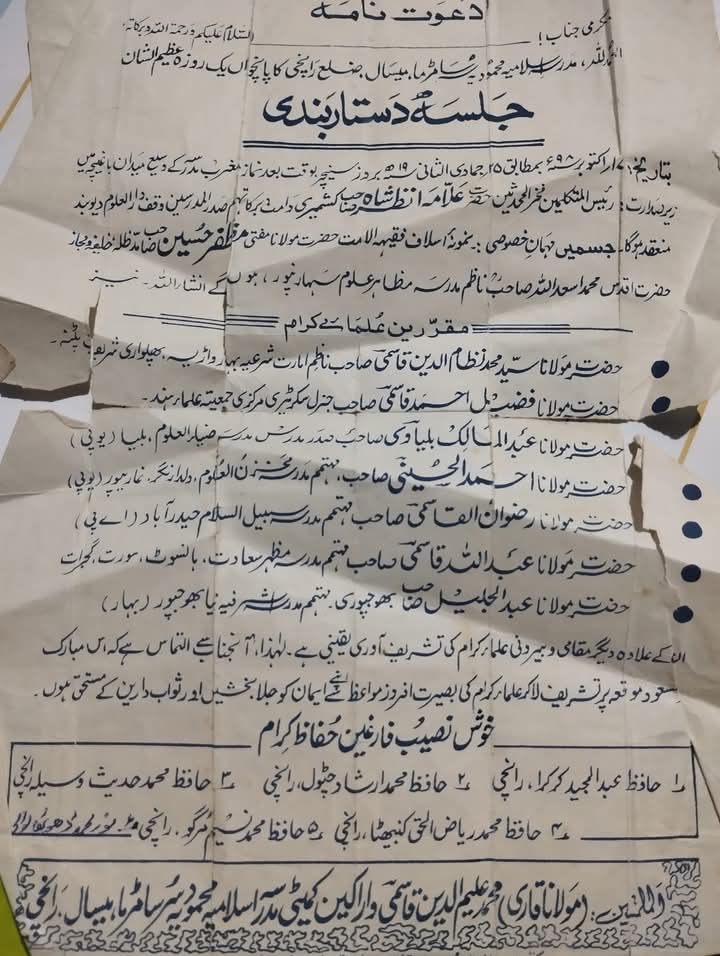 دعوت نامہ
مکرمی جناب! السلام علیکم ورحمۃ اللہ وبرکاتہ،
الحمد للہ، مدرسہ اسلامیہ محمودیہ سرسا مڑما، میسال، ضلع رانچی کا پانچواں یک روزہ عظیم الشان
جلسۂ دستار بندی
بتاریخ: ۱۷ اکتوبر ۹۸ء بمطابق ۲۵ جمادی الثانی ۱۹ھ بروز سنیچر بوقت بعد نماز مغرب مدرسہ کے وسیع میدان باغیچہ میں
زیر صدارت: رئیس المتکلمین فخر المحدثین حضرت علامہ انظر شاہ صاحب کشمیری دامت برکاتہم صدر المدرسین وقف دار العلوم دیوبند
منعقد ہوگا۔ جسمیں مہمان خصوصی: نمونۂ اسلاف فقیہ الامت حضرت مولانا مفتی مظفر حسین صاحب مدظلہ خلیفہ و مجاز
حضرت اقدس محمد اسعد اللہ صاحب ناظم مدرسہ مظاہر علوم سہارنپور، ہوں گے انشاء اللہ۔ نیز
مقررین علمائے کرام
حضرت مولانا سید محمد نظام الدین قاسمی صاحب ناظم امارت شرعیہ بہار واڑیسہ، پھلواری شریف پٹنہ۔
حضرت مولانا فضیل احمد قاسمی صاحب جنرل سکریٹری مرکزی جمعیتہ علماء ہند۔
حضرت مولانا عبد المالک بلیاوی صاحب صدر مدرس مدرسہ ضیاء العلوم، بلیا (یوپی)
حضرت مولانا احمد الحسینی صاحب، مہتمم مدرسہ مخزن العلوم، دلدار نگر، غازیپور (یوپی)
حضرت مولانا رضوان القاسمی صاحب مہتمم مدرسہ سبیل السلام حیدرآباد (اے پی)
حضرت مولانا عبد اللہ قاسمی صاحب مہتمم مدرسہ مظہر سعادت، ہانسوٹ، سورت، گجرات
حضرت مولانا عبد الجلیل صاحب بھوجپوری۔ مہتمم مدرسہ اشرفیہ نیا بھوجپور (بہار)
ان کے علاوہ دیگر مقامی و بیرونی علماء کرام کی تشریف آوری یقینی ہے۔ لہٰذا، آنجناب سے التماس ہے کہ اس مبارک
و مسعود موقعہ پر تشریف لاکر علماء کرام کی بصیرت افروز مواعظ سے اپنے ایمان کو جلا بخشیں اور ثواب دارین کے مستحق ہوں۔
خوش نصیب فارغین حفاظ کرام
۱ حافظ عبد المجید کرکرا، رانچی ۲ حافظ محمد ارشاد چٹول، رانچی ۳ حافظ محمد حدیث وسیلہ رانچی
۴ حافظ محمد ریاض الحق کنبھٹا، رانچی ۵ حافظ محمد نسیم مرگو۔ رانچی
الملتمسین: (مولانا قاری) محمد علیم الدین قاسمی و اراکین کمیٹی مدرسہ اسلامیہ محمودیہ سرسا مڑما، میسال، رانچی